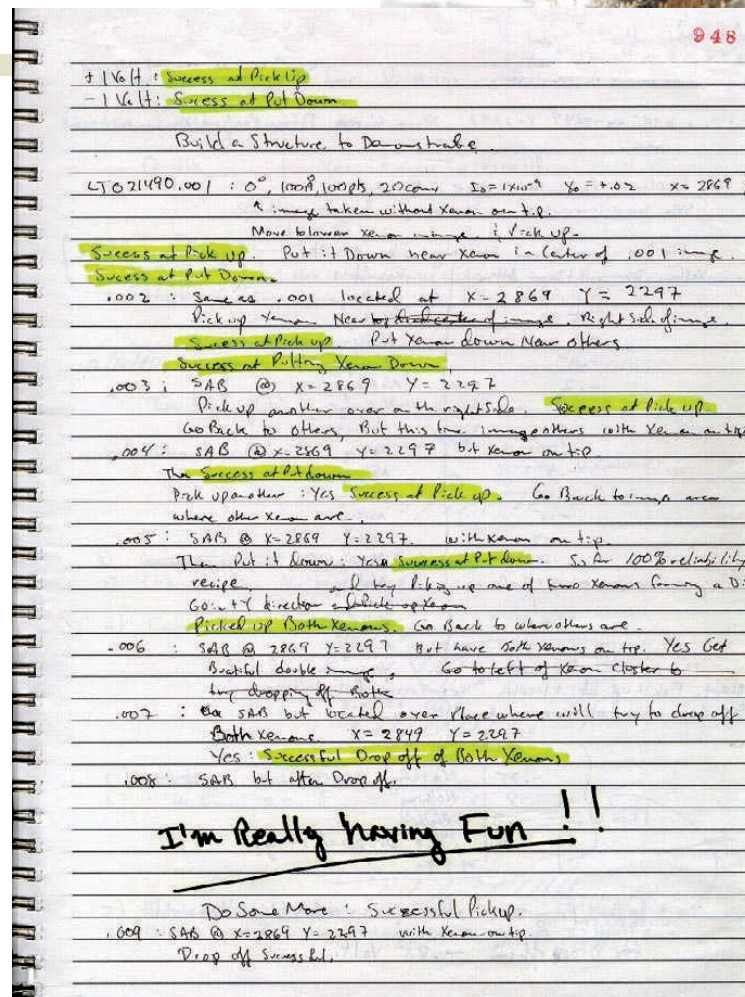 948
+ 1 Volt : Success at Pick Up
- 1 Volt : Sucess at Put Down
Build a Structure to Demonstrate.
LT021490.001 : 0°, 100Å, 100pts, 20conv x= 2869
↑ image taken without Xenon on tip.
Move to lower Xenon image, & Pick up.
Success at Pick up. Put it Down near Xenon in Center of .001 image.
Success at Put Down.
.002 : Same as .001 located at X= 2869 Y= 2297
Pick up Xenon Near of image. Right Side of image.
Sucess at Pick up. Put Xenon down Near others.
Success at Putting Xenon Down.
.003 ; SAB @ X= 2869 Y= 2297
Pick up another over on the right Side. Success at Pick up.
Go Back to others, But this time image others with Xenon on tip
.004 : SAB @ X=2869 Y=2297 but Xenon on tip
Then Success at Put down
Pick up another : Yes Success at Pick up. Go Back to image area
where other Xenon are.
.005 : SAB @ X=2869 Y=2297. with Xenon on tip.
Then Put it down : Yes Success at Put down. So far 100% reliability
recipe, try Piking up one of two Xenons forming a Di
Go in +Y direction & Pick up Xenon
Picked up Both Xenons. Go Back to where others are.
.006 : SAB @ 2869 Y=2297 But have Both Xenons on tip. Yes Get
Beautiful double image, Go to left of Xenon Cluster to
try dropping off Both
.007 : SAB but located over Place where will try to drop off
Both Xenons. X= 2849 Y= 2297
Yes : Successful Drop off of Both Xenons
.008 : SAB but after Drop off.
I'm Really having Fun !!
Do Some More : Successful Pickup.
.009 : SAB @ X=2869 Y=2297 with Xenon on tip.
Drop off Successful.